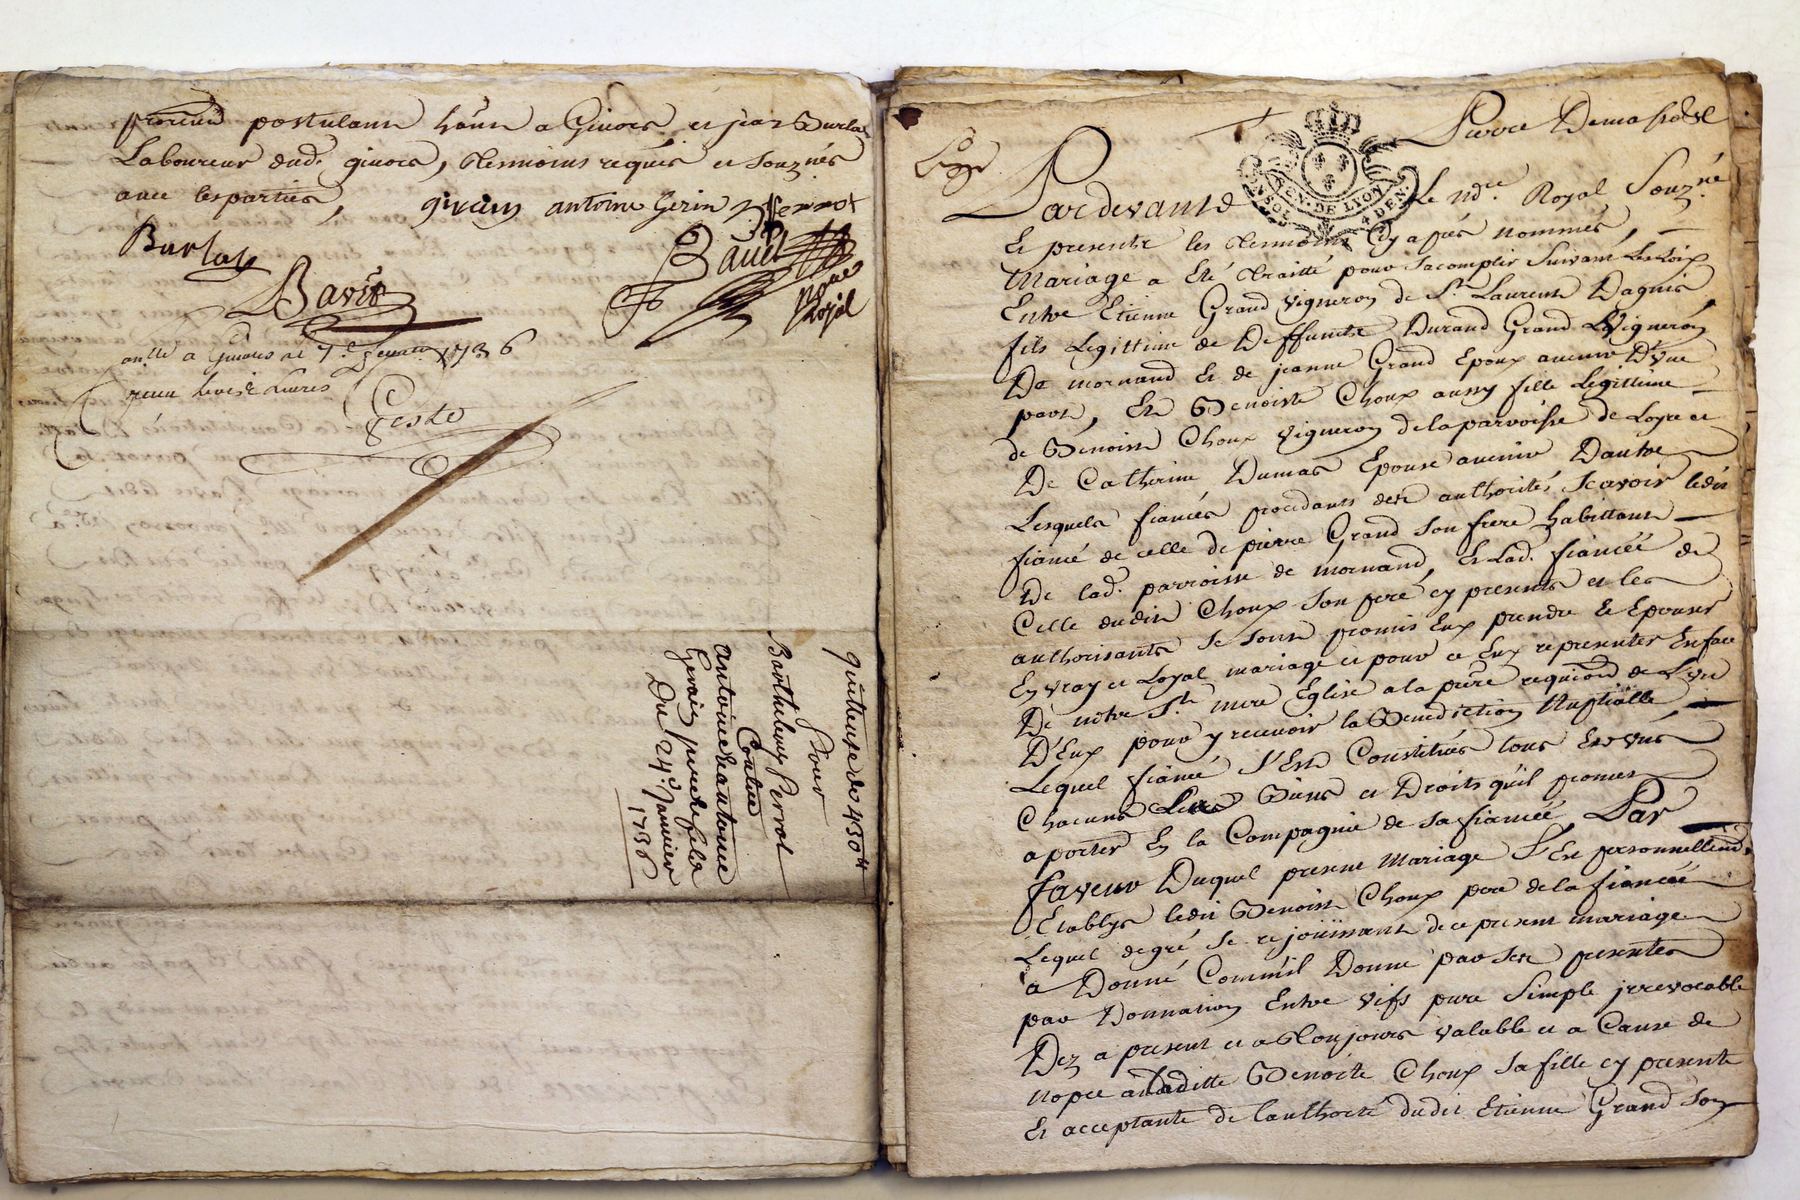 postulant a Givors et jean Burlas
Laboureur dud. givors, temoins requis et souznés
avec les parties, girain antoine Gerin
Burlas
Bavet
Bavet
Royal
a Givors le 7e fevrier 1736
recu treize livres
Geste
quittance de 430 tt
Pour
Barthelemy Perrval
Contre
antoine
Gerain pere et fils
Du 24e Janvier
1736
Pierre
GEN. DE LYON
SOL
4 DEN.
Pardevant Le nore. Royal Souzné
Et presente les temoins cy apres nommés,
Mariage a Eté traitté pour sacomplir suivant les Loix
Entre Etienne Grand vigneron de St. Laurent Dagnis
fils Legittime de Deffunct Durand Grand Vigneron
De mornand et de jeanne Grand Epoux avenir D'vne
part, Et Benoiste Choux aussy fille Legittime
de Benoist Choux vigneron de la parroisse de Loyre et
De Catherine Dumas Epouse avenir Dautre
Lesquels fiancés procedants des authorités scavoir ledit
fiancé de celle de pierre Grand son frere habittant
De lad. parroisse de mornand, Et Lad. fiancée de
Celle dudit Choux son pere cy presents et les
authorisants se sont promis Eux prendre et Epouser
En vray et Loyal mariage et pour ce Eux representer Enface
De notre Ste. mere Eglise a la pre. requiòn de L'vn
D'Eux pour y recevoir la Benediction Nuptialle
Lequel fiancé s'Est Constitués tous Et vns
Chacuns Ses Biens et Droits qu'il promet
aporter En la Compagnie de sa fiancée Par
faveur Duquel present Mariage s'Est personnellemt.
Etablys ledit Benoist Choux pere de la fiancée
Lequel degré se rejoüissant de ce present mariage
a Donné Comm'il Donne par ses presentes
par Donnation Entre vifs pure simple jrrevocable
Dez a present et a Toujours valable et a Cause de
nopce a Laditte Benoite Choux sa fille cy presente
Et acceptante de l'authorité dudit Etienne Grand son